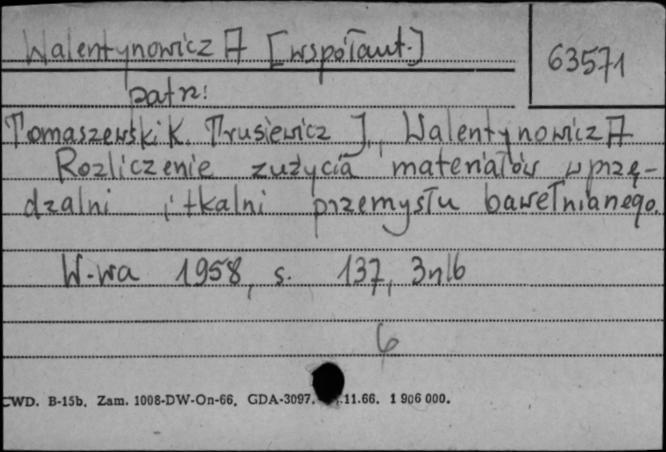 Walentynowicz A [współaut.]
63571
patrz:
Tomaszewski K. Trusiewicz J., Walentynowicz A
Rozliczenie zużycia materiałów w przę-
dzalni i tkalni przemysłu bawełnianego.
W-wa 1958, s. 137, 3nlb
6
CWD. B-15b. Zam. 1008-DW-On-66. GDA-3097. .11.66. 1 906 000.